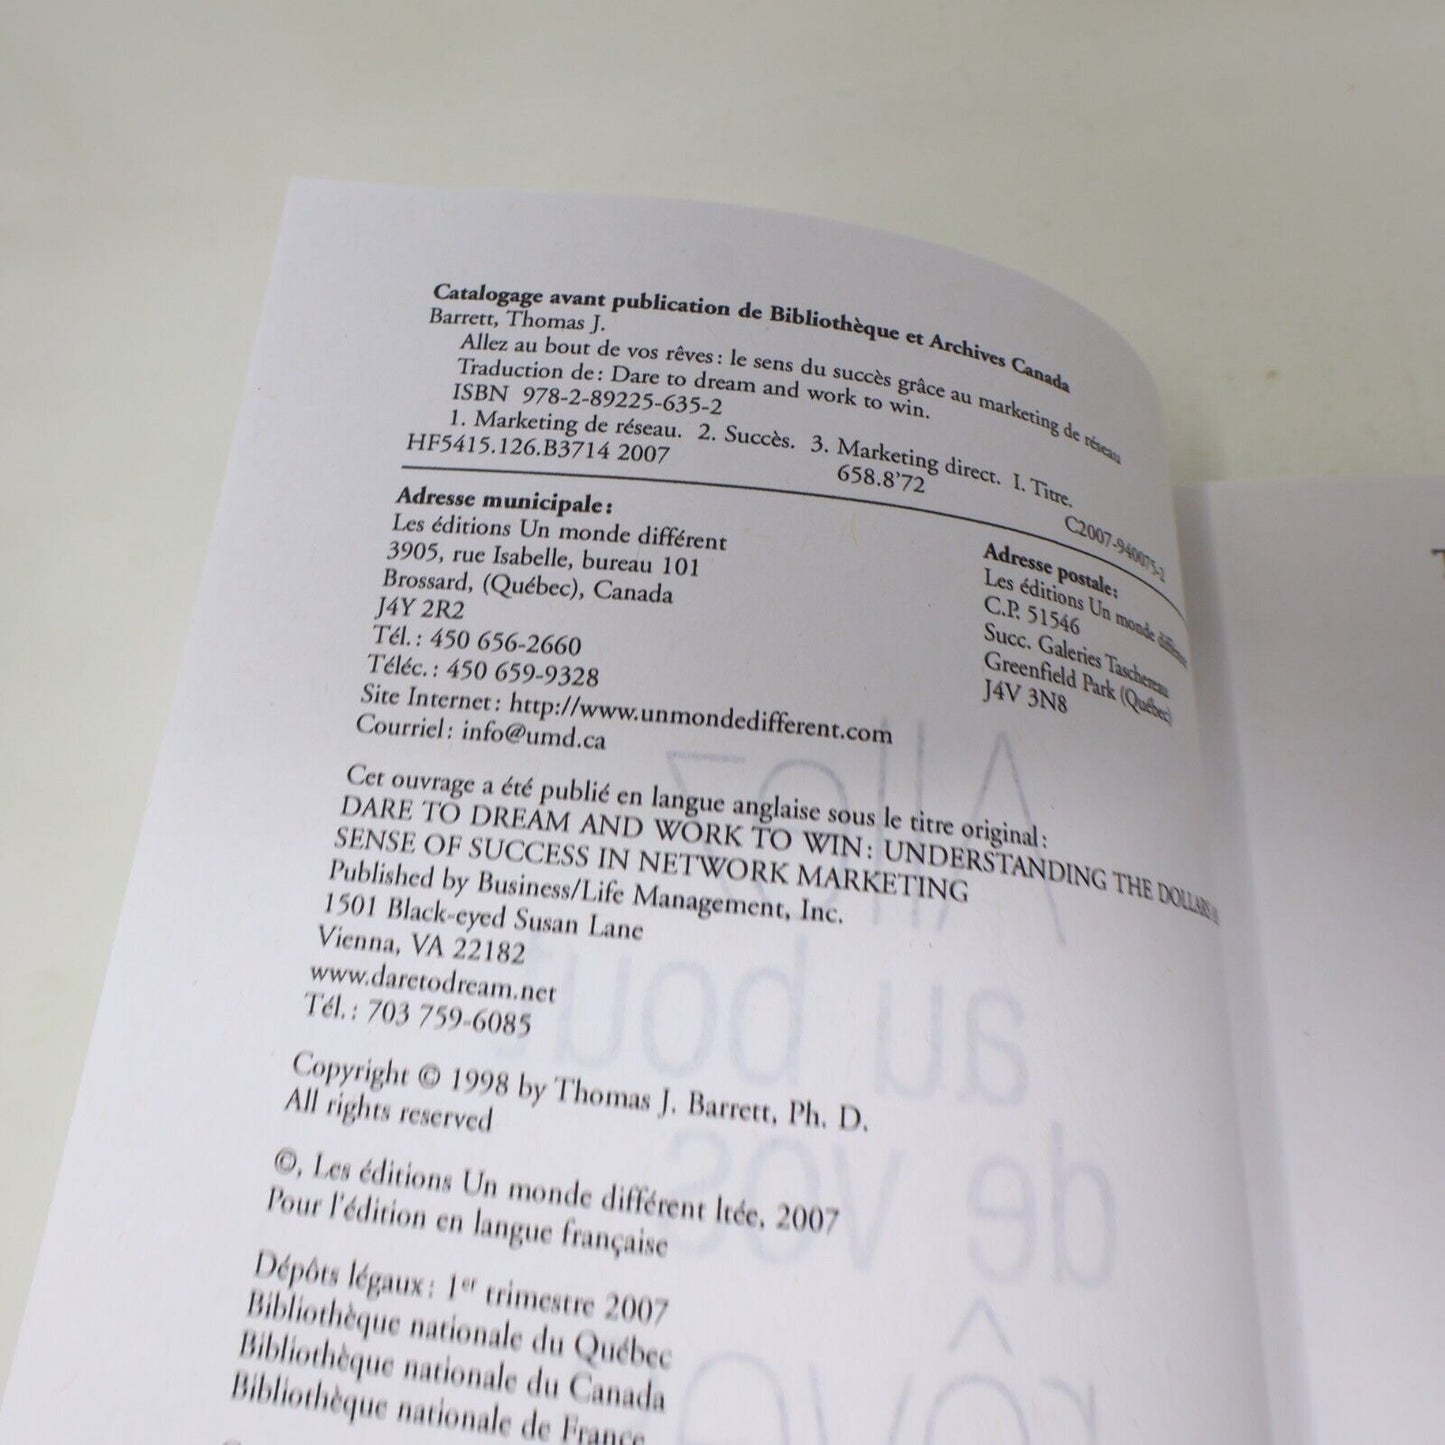 Catalogage avant publication de Bibliothèque et Archives Canada
Barrett, Thomas J.
Allez au bout de vos rêves : le sens du succès grâce au marketing de réseau
Traduction de : Dare to dream and work to win.
ISBN 978-2-89225-635-2
1. Marketing de réseau. 2. Succès. 3. Marketing direct. I. Titre.
HF5415.126.B3714 2007 658.8'72 C2007-940075-2
Adresse municipale :
Les éditions Un monde différent
3905, rue Isabelle, bureau 101
Brossard, (Québec), Canada
J4Y 2R2
Tél. : 450 656-2660
Téléc. : 450 659-9328
Site Internet : http://www.unmondedifferent.com
Courriel : info@umd.ca
Adresse postale :
Les éditions Un monde différent
C.P. 51546
Succ. Galeries Taschereau
Greenfield Park (Québec)
J4V 3N8
Cet ouvrage a été publié en langue anglaise sous le titre original :
DARE TO DREAM AND WORK TO WIN : UNDERSTANDING THE DOLLARS
SENSE OF SUCCESS IN NETWORK MARKETING
Published by Business/Life Management, Inc.
1501 Black-eyed Susan Lane
Vienna, VA 22182
www.daretodream.net
Tél. : 703 759-6085
Copyright © 1998 by Thomas J. Barrett, Ph. D.
All rights reserved
©, Les éditions Un monde différent ltée, 2007
Pour l'édition en langue française
Dépôts légaux : 1er trimestre 2007
Bibliothèque nationale du Québec
Bibliothèque nationale du Canada
Bibliothèque nationale de France